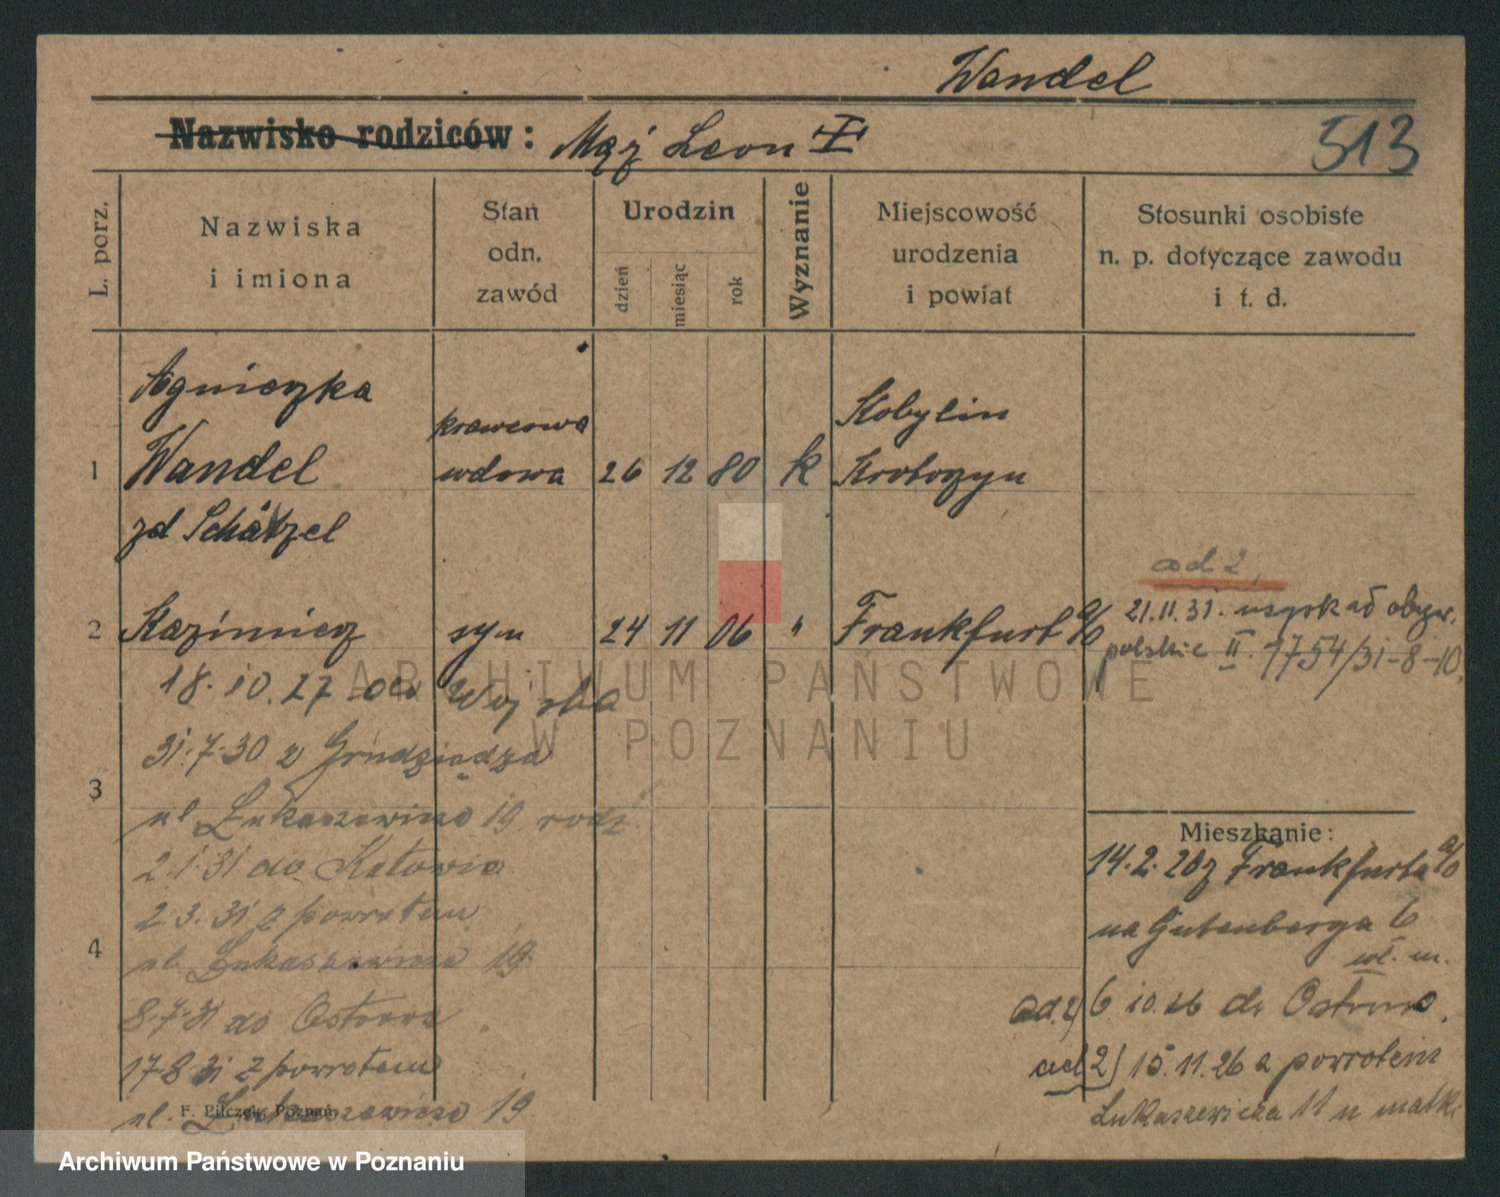 Wandel
Nazwisko rodziców: Mąż Leon I
513
L. porz.
Nazwiska
i imiona
Stan
odn.
zawód
Urodzin
dzień
miesiąc
rok
Wyznanie
Miejscowość
urodzenia
i powiat
Stosunki osobiste
n. p. dotyczące zawodu
i t. d.
Agnieszka
krawcowa
Kobylin
1 Wandel wdowa 26 12 80 k Krotoszyn
zd Schätzel
ad 2.
2 Kazimierz syn 24 11 06 " Frankfurt a/O
21.11.31. uzyskał obyw.
polskie II. 1754/31-8-10.
18.10.27 do Wojska
31.7.30 z Grudziądza
3
ul Łukaszewicza 19 rodz.
2.1.31 do Katowic
2.3.31 z powrotem
4
ul. Łukaszewicza 19.
8.7.31 do Ostrowa
17.8.31 z powrotem
ul. Łukaszewicza 19.
F. Pilczek, Poznań.
Mieszkanie:
14.2.20 z Frankfurta a/O
na Gutenberga 6
wł. m.
ad. 2) 6.10.26 do Ostrowa.
ad 2) 15.11.26 z powrotem
Łukaszewicza 11 u matki
ARCHIWUM PAŃSTWOWE
W POZNANIU
Archiwum Państwowe w Poznaniu